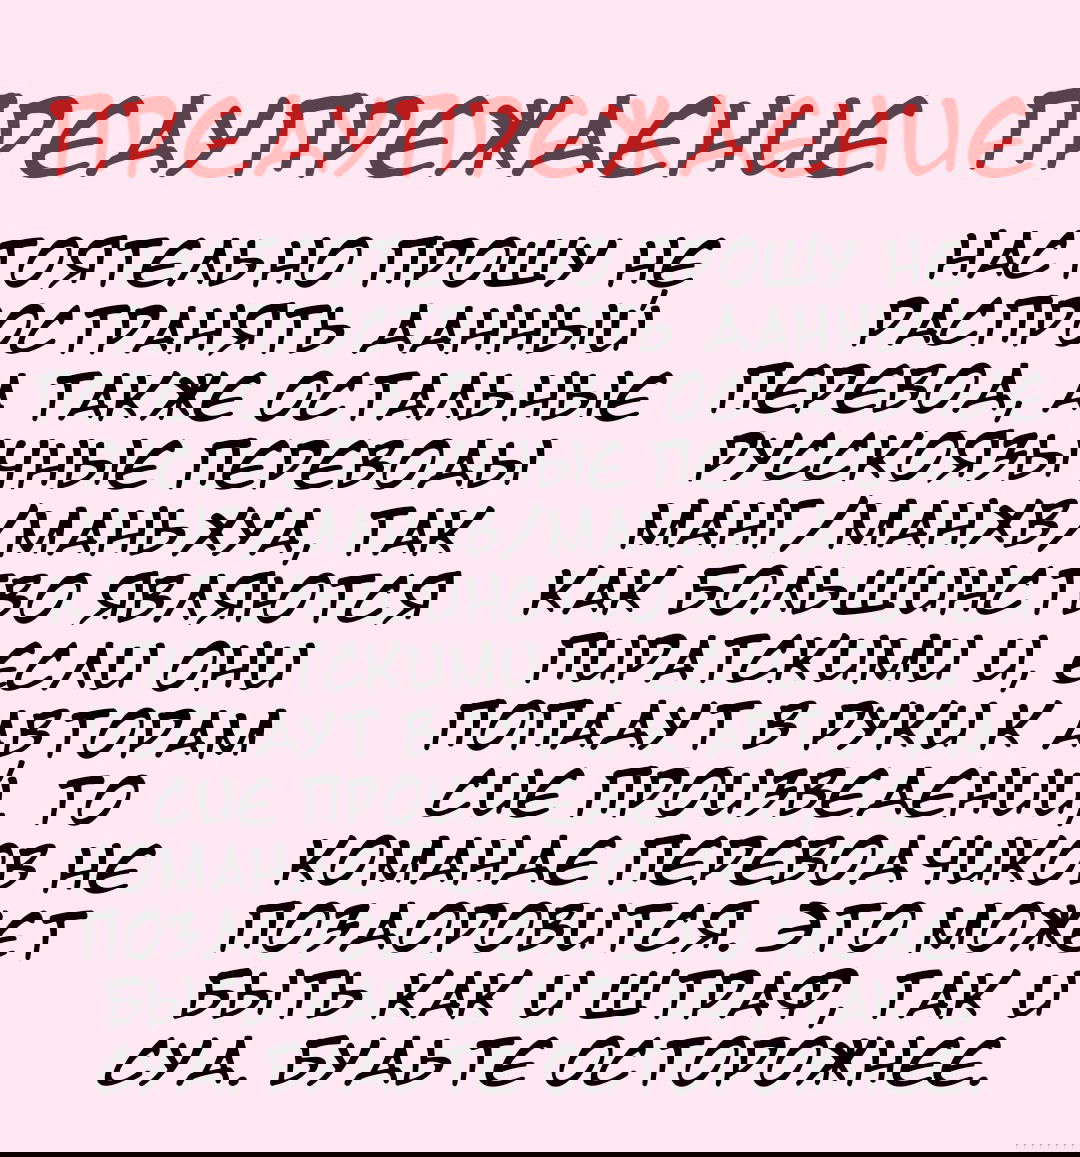 ПРЕДУПРЕЖДЕНИЕ
НАСТОЯТЕЛЬНО ПРОШУ НЕ
РАСПРОСТРАНЯТЬ ДАННЫЙ
ПЕРЕВОД, А ТАКЖЕ ОСТАЛЬНЫЕ
РУССКОЯЗЫЧНЫЕ ПЕРЕВОДЫ
МАНГ/МАНХВ/МАНЬХУА, ТАК
КАК БОЛЬШИНСТВО ЯВЛЯЮТСЯ
ПИРАТСКИМИ И, ЕСЛИ ОНИ
ПОПАДУТ В РУКИ К АВТОРАМ
СИЕ ПРОИЗВЕДЕНИЙ, ТО
КОМАНДЕ ПЕРЕВОДЧИКОВ НЕ
ПОЗДОРОВИТСЯ. ЭТО МОЖЕТ
БЫТЬ КАК И ШТРАФ, ТАК И
СУД. БУДЬТЕ ОСТОРОЖНЕЕ.